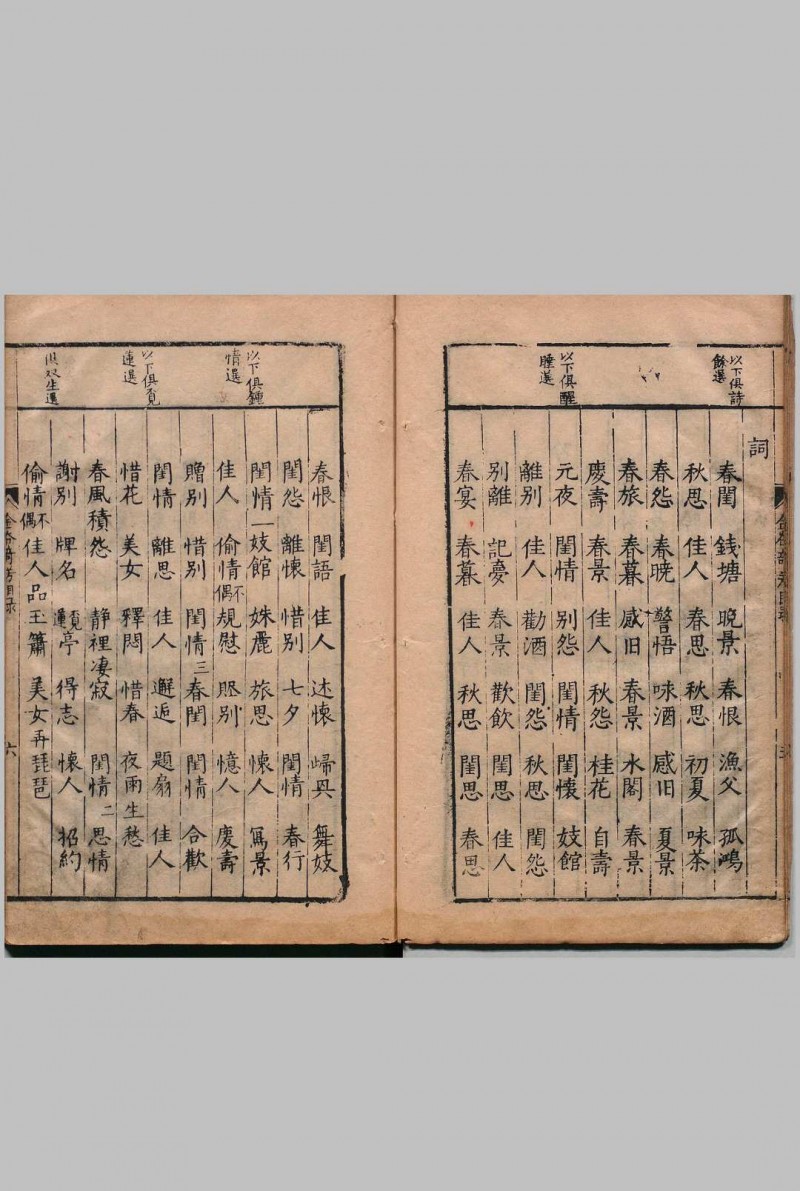 以下俱詩
餘選
以下俱醒
睡選
詞
春閨　錢塘　晚景　春恨　漁父　孤鴻
秋思　佳人　春思　秋思　初夏　味茶
春怨　春曉　警悟　味酒　感旧　夏景
春旅　春暮　感旧　春景　水閣　春景
慶壽　春景　佳人　秋怨　桂花　自壽
元夜　閨情　别怨　閨情　閨懷　妓館
離别　佳人　勸酒　閨怨　秋思　閨怨
别離　記夢　春景　歡飲　閨思　佳人
春宴　春暮　佳人　秋思　閨思　春思
以下俱鍾
情選
以下俱覓
蓮選
俱双生選
春恨　閨語　佳人　述懷　歸興　舞妓
閨怨　離懷　惜别　七夕　閨情　春行
閨情一　妓館　姝麗　旅思　懐人　寫景
佳人　偷情不偶　規慰　賍别　憶人　慶壽
贈别　惜别　閨情三　春閨　閨情　合歡
閨情　離思　佳人　邂逅　題扇　佳人
惜花　美女　釋悶　惜春　夜雨生愁
春風積怨　静裡凄寂　閨情二　思情
謝别　牌名　覓蓮亭　得志　懷人　招約
偷情不偶　佳人品玉簫　美女再琵琶
六